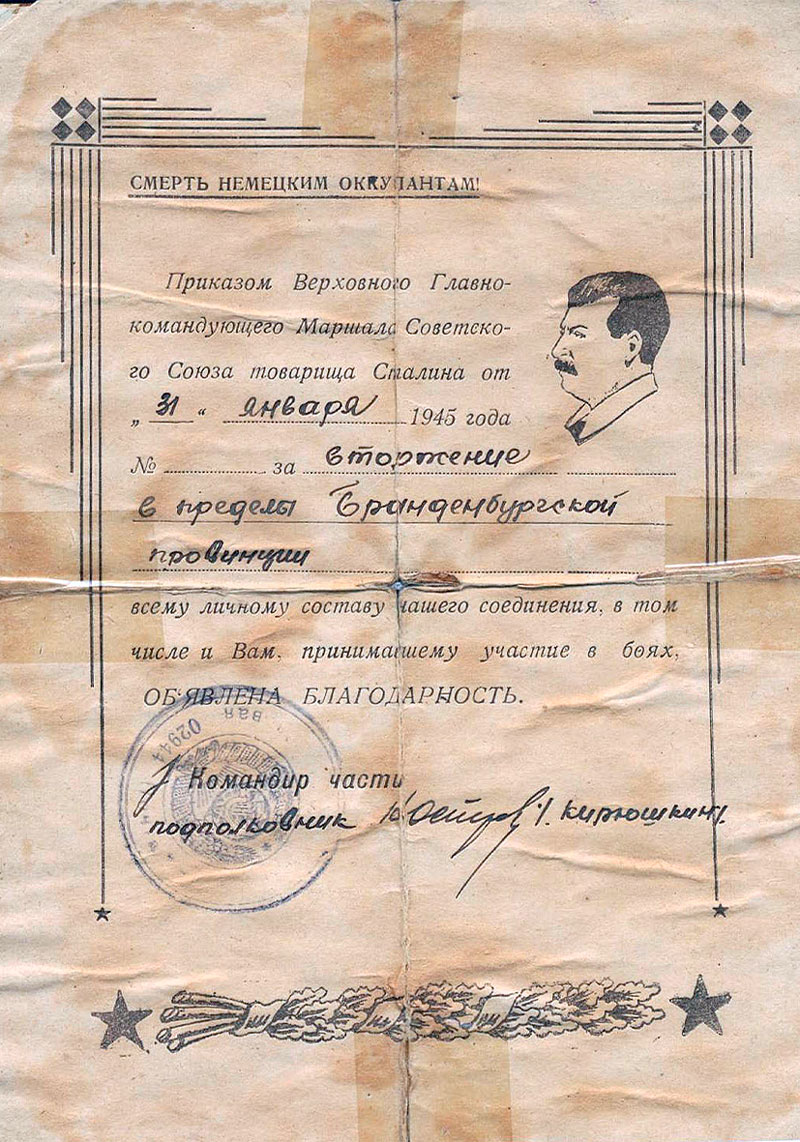 СМЕРТЬ НЕМЕЦКИМ ОККУПАНТАМ!
Приказом Верховного Главно-
командующего Маршала Советско-
го Союза товарища Сталина от
„31“ января 1945 года
№ за вторжение
в пределы Бранденбургской
провинции
всему личному составу нашего соединения, в том
числе и Вам, принимавшему участие в боях,
ОБ'ЯВЛЕНА БЛАГОДАРНОСТЬ.
02944
Командир части
подполковник /Кирюшкин/